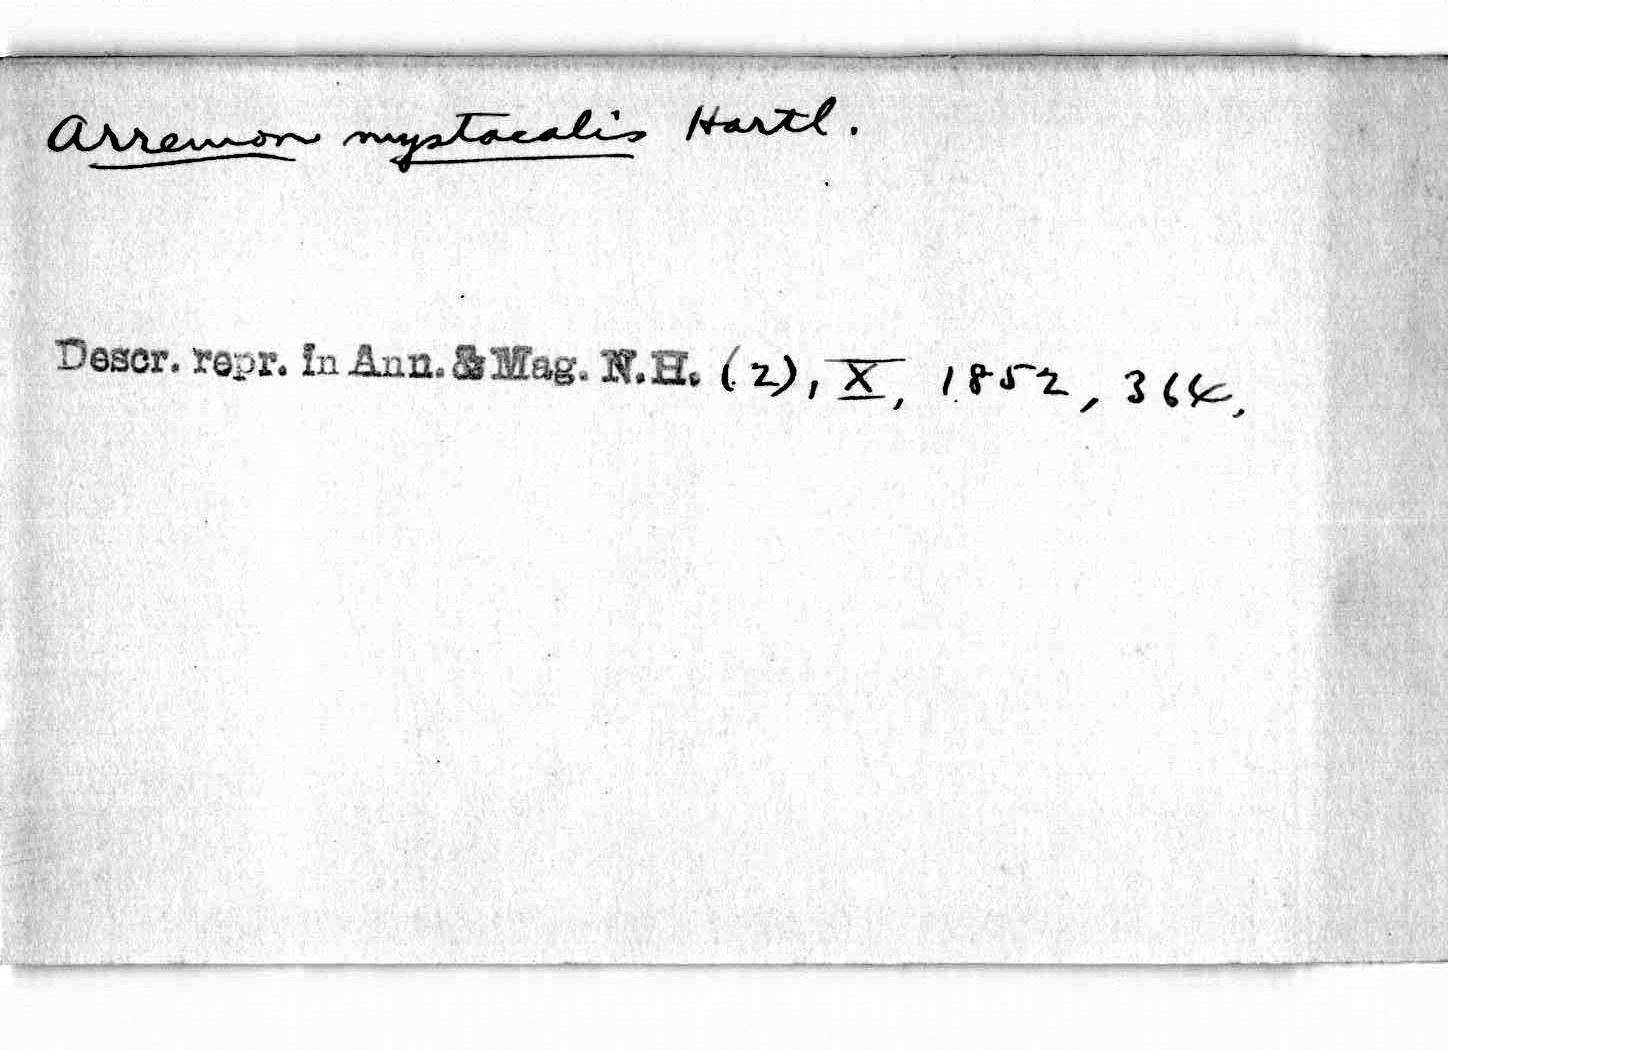 Arremon mystacalis Hartl.
Descr. repr. in Ann. & Mag. N.H. (2), X, 1852, 364.